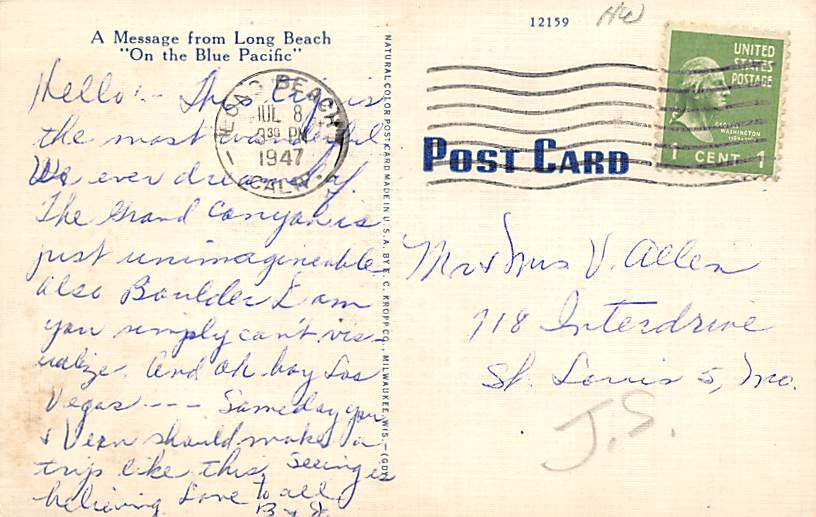 12159
HW
A Message from Long Beach
"On the Blue Pacific"
LONG BEACH
JUL 8
3 30 PM
1947
CALIF.
UNITED
STATES
POSTAGE
GEORGE
WASHINGTON
1 CENT 1
POST CARD
Hello! - This trip is
the most wonderful
We ever dreamed of.
The Grand Canyon is
just unimagineable
also Boulder Dam
you simply can't vis-
ualize. And oh boy Las
Vegas --- Someday you
& Vern should make a
trip like this, Seeing is
believing Love to all
NATURAL COLOR POST CARD MADE IN U.S.A. BY E. C. KROPP CO., MILWAUKEE, WIS.
Mr & Mrs V. Allen
718 Interdrive
St. Louis 5, Mo.
J.S.